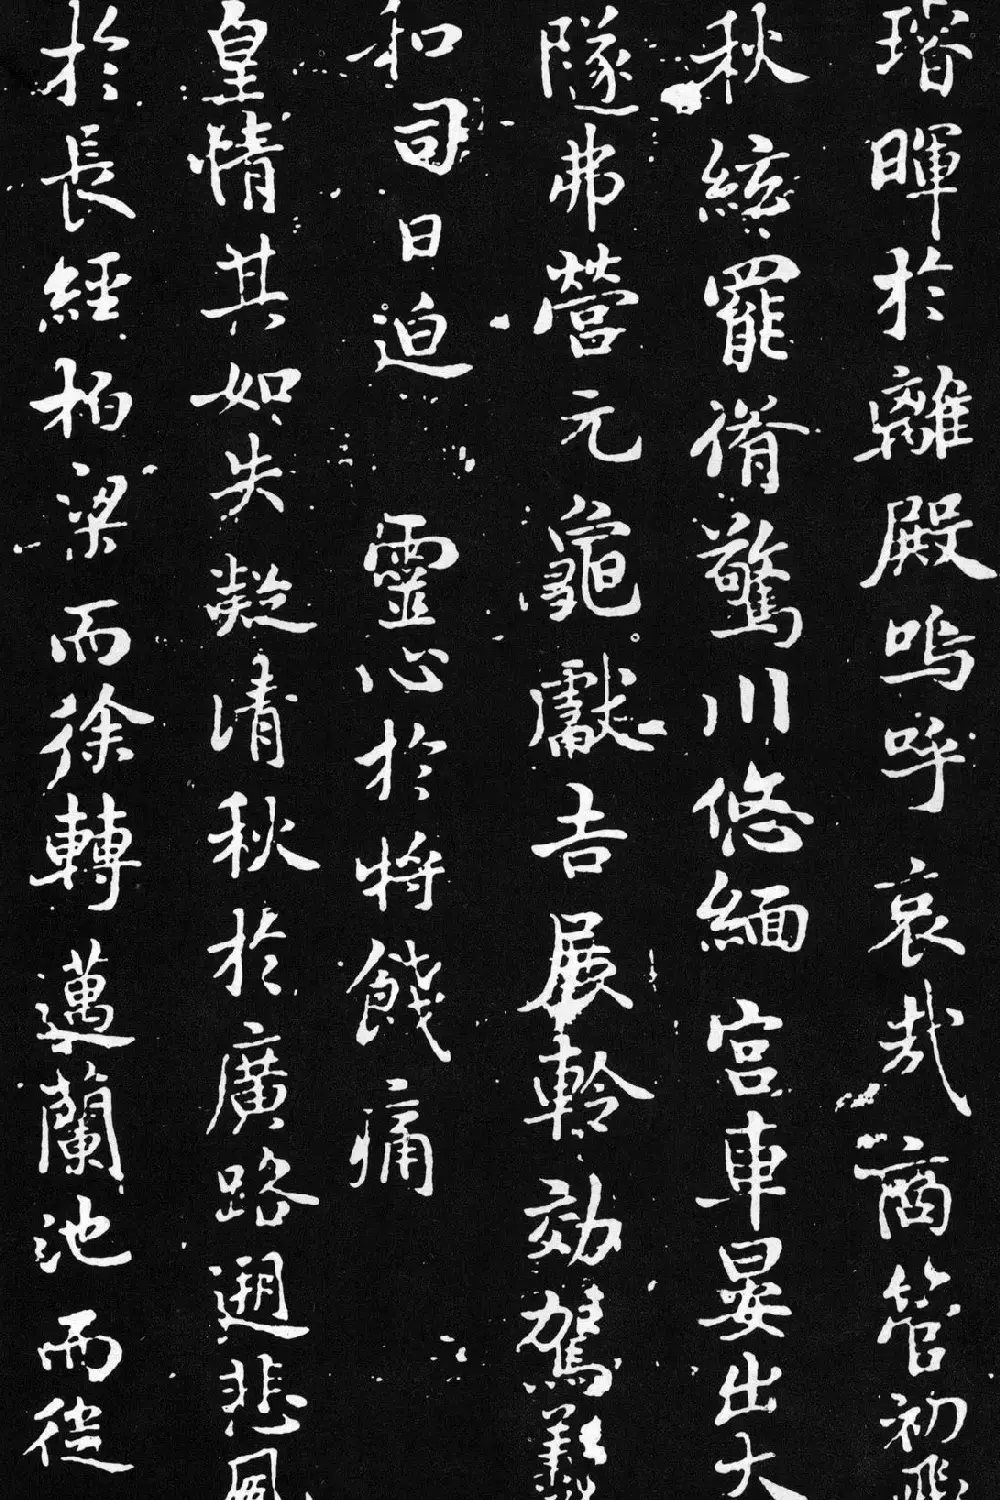 璿暉於離殿嗚呼哀哉商管初飛
秋絃罷脩驚川悠緬宮車晏出大
隧弗營元龜獻吉展軨効駕艱
和司日迫靈心於將餞痛
皇情其如失凝清秋於廣路遡悲風
於長經柏梁而徐轉邁蘭池而徙